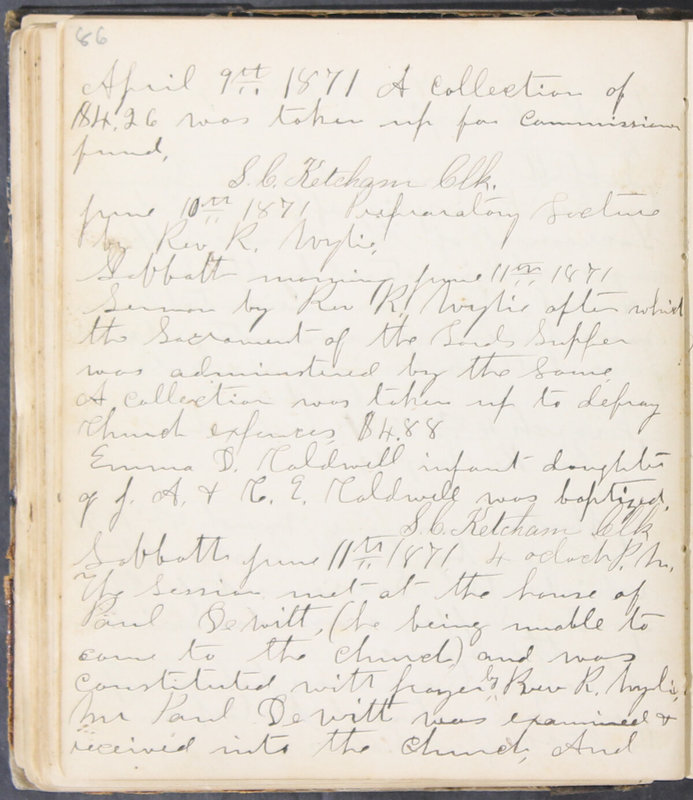 86
April 9th 1871 A collection of
$4.26 was taken up for Commissioners
fund,
S. C. Ketcham Clk.
June 10th 1871 Prepraratory Lecture
by Rev R. Wylie,
Sabbath morning June 11th 1871
Sermon by Rev R. Wylie after which
the Sacrament of the Lords Supper
was administered by the Same
A collection was taken up to defray
church expences, $4.88
Emma D. Caldwell infant daughter
of J. A. & C. E. Caldwell was baptized,
S. C. Ketcham Clk
Sabbath June 11th 1871 4 oclock P. M.
The Session met at the house of
Paul Dewitt, (he being unable to
come to the church) and was
constituted with prayer by Rev R. Wylie,
Mr Paul Dewitt was examined &
received into the church, And